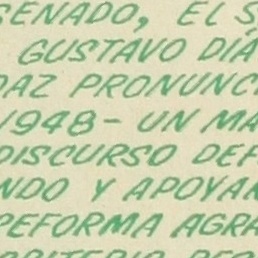 SENADO, EL S
GUSTAVO DÍA
DAZ PRONUNC
1948 - UN MA
DISCURSO DEF
NDO Y APOYAN
REFORMA AGRA